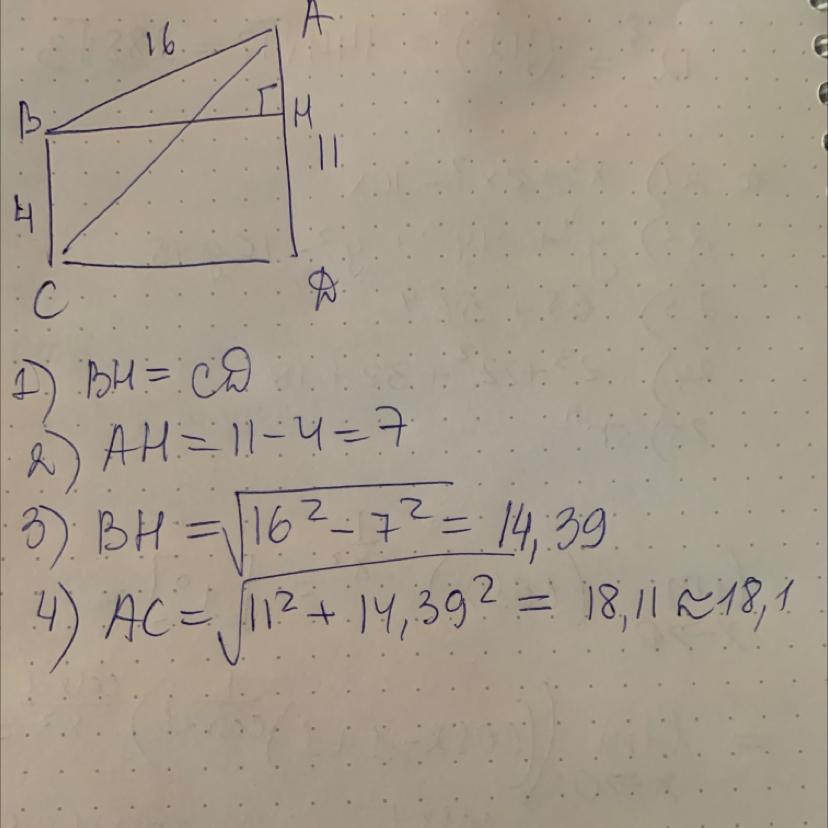 A
16
B
H
11
4
C
D
1) BH = CD
2) AH = 11 - 4 = 7
3) BH = √16² - 7² = 14,39
4) AC = √11² + 14,39² = 18,11 ≈ 18,1